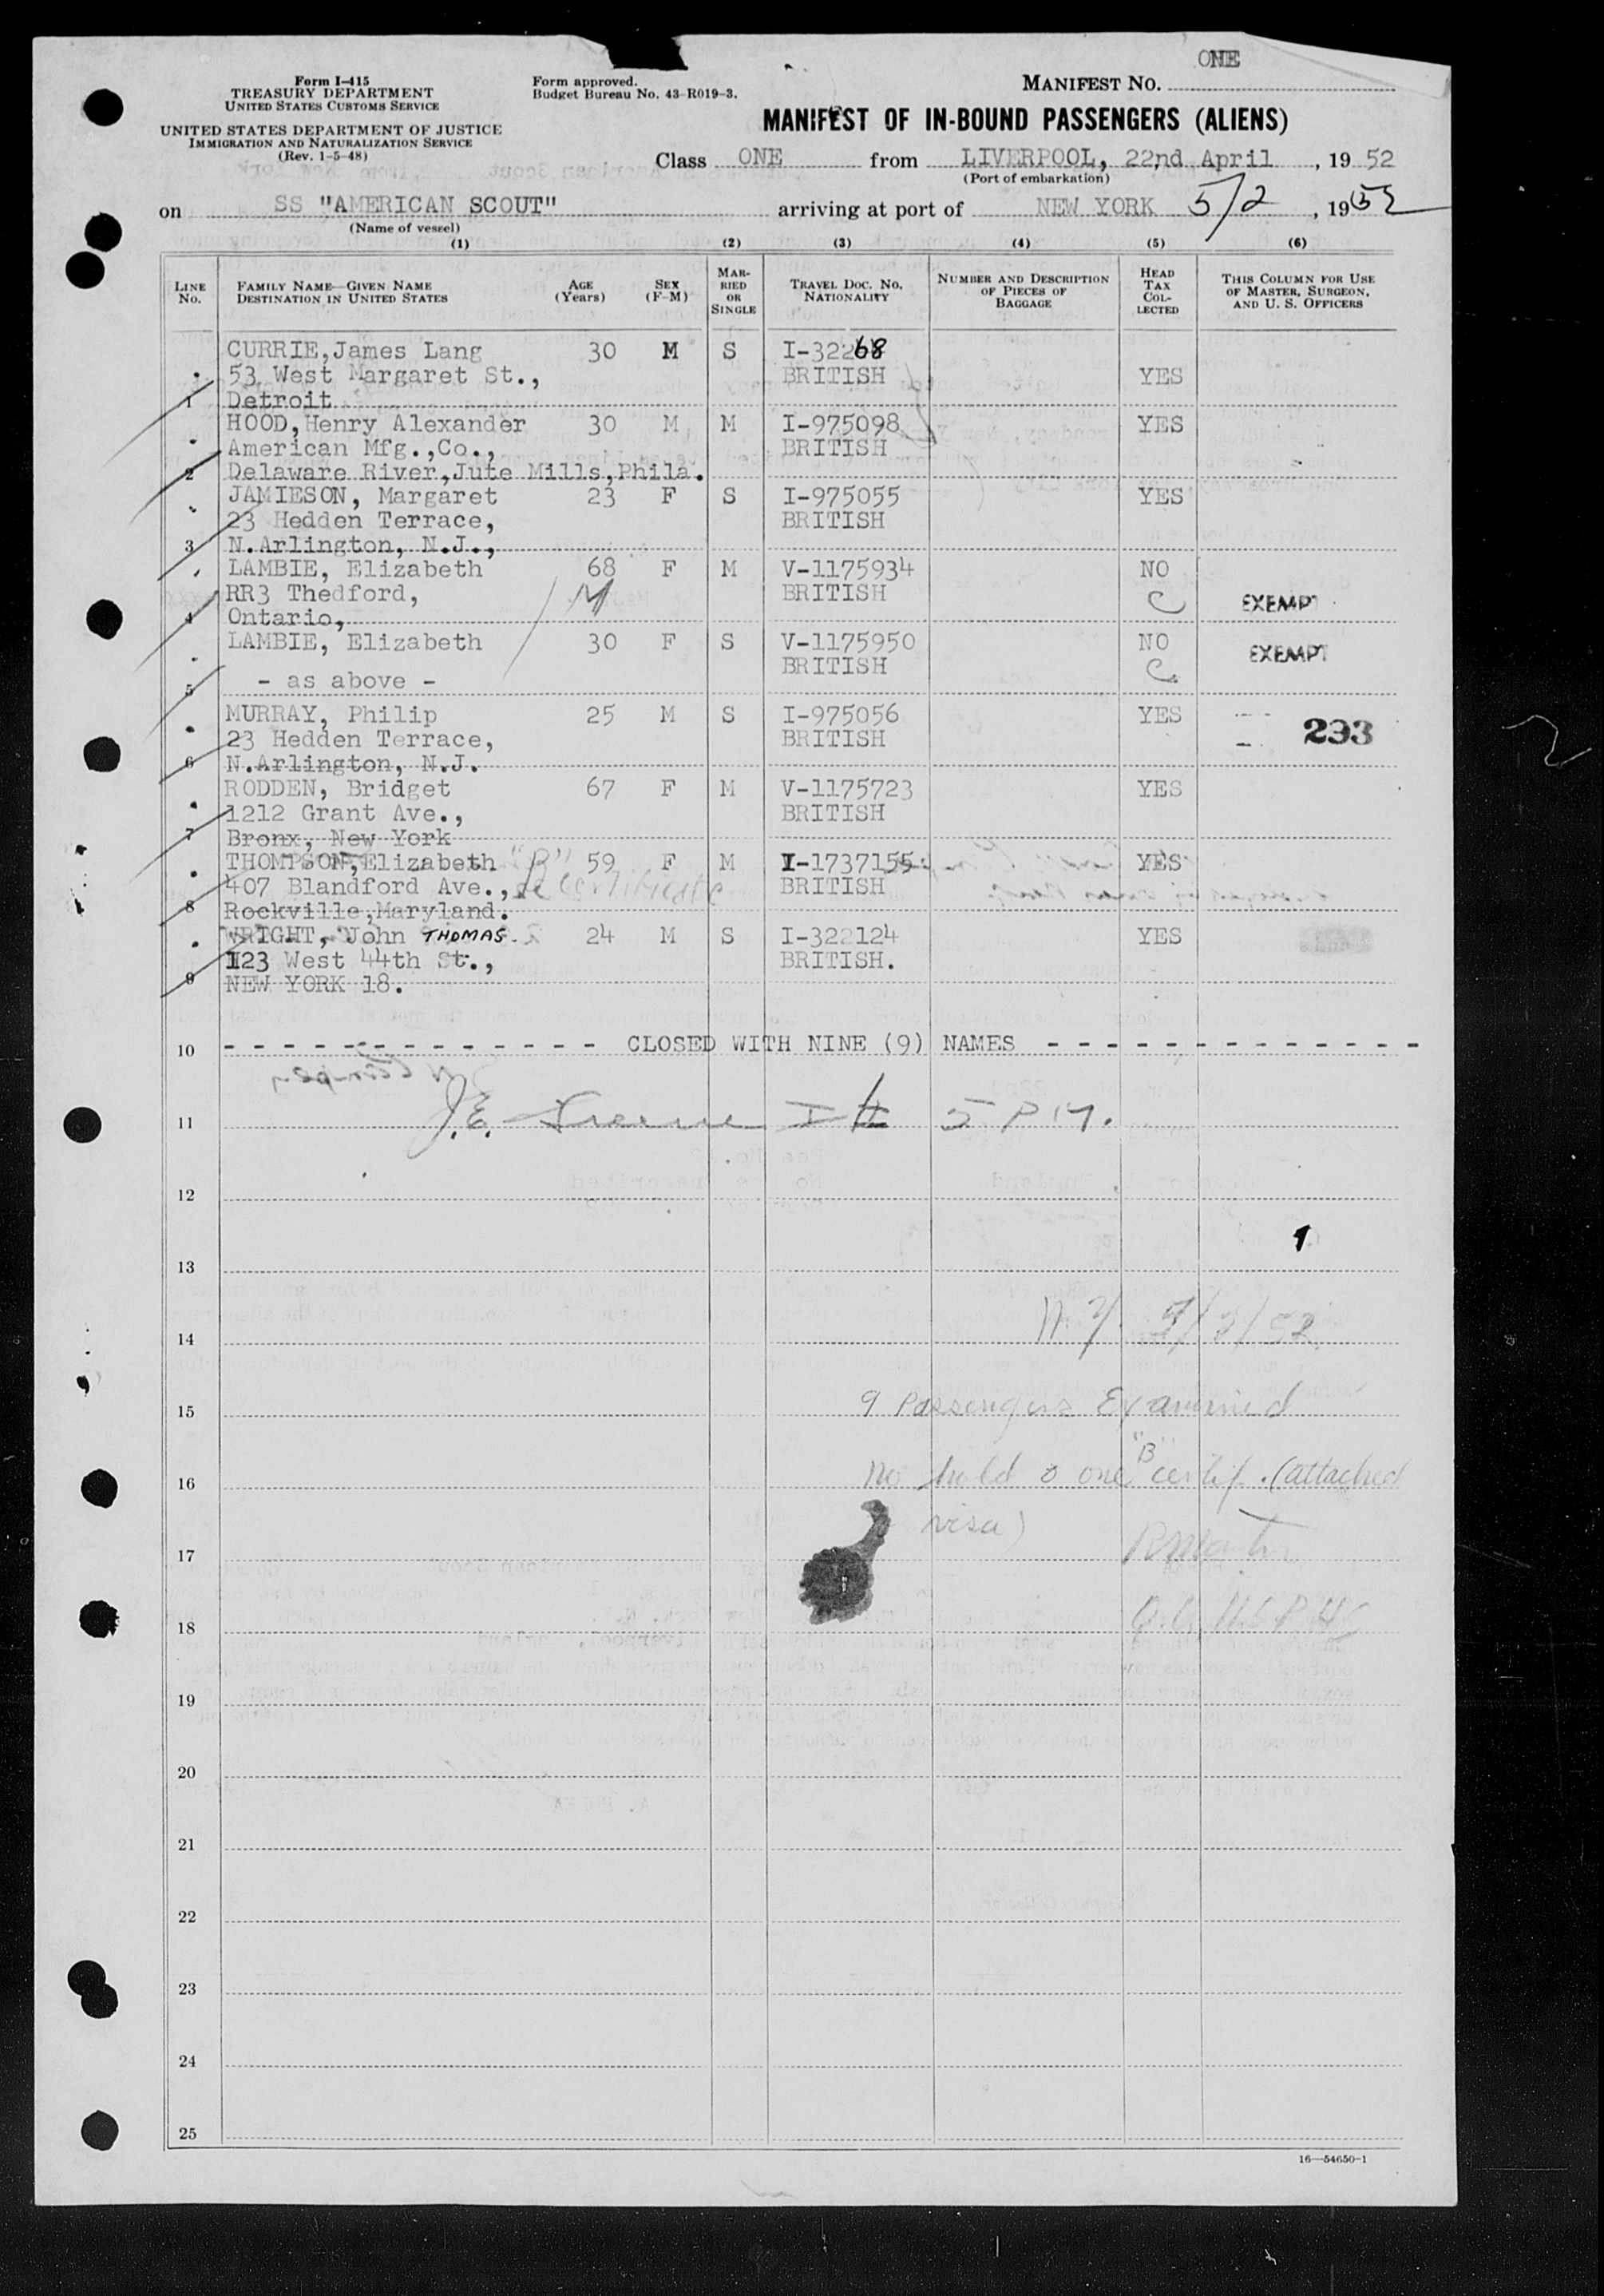 ONE
Form I-415
TREASURY DEPARTMENT
UNITED STATES CUSTOMS SERVICE
UNITED STATES DEPARTMENT OF JUSTICE
IMMIGRATION AND NATURALIZATION SERVICE
(Rev. 1-5-48)
Form approved.
Budget Bureau No. 43-R019-3.
MANIFEST NO.
MANIFEST OF IN-BOUND PASSENGERS (ALIENS)
Class ONE from LIVERPOOL, 22nd April, 19 52
(Port of embarkation)
on SS "AMERICAN SCOUT" arriving at port of NEW YORK 5/2, 1952
(Name of vessel)
(1) (2) (3) (4) (5) (6)
LINE No.
FAMILY NAME—GIVEN NAME
DESTINATION IN UNITED STATES
AGE (Years)
SEX (F-M)
MARRIED OR SINGLE
TRAVEL DOC. NO.
NATIONALITY
NUMBER AND DESCRIPTION OF PIECES OF BAGGAGE
HEAD TAX COLLECTED
THIS COLUMN FOR USE OF MASTER, SURGEON, AND U. S. OFFICERS
CURRIE,James Lang 30 M S I-32268
53 West Margaret St., BRITISH YES
1 Detroit
HOOD,Henry Alexander 30 M M I-975098 YES
American Mfg.,Co., BRITISH
2 Delaware River,Jute Mills,Phila.
JAMIESON, Margaret 23 F S I-975055 YES
23 Hedden Terrace, BRITISH
3 N.Arlington, N.J.,
LAMBIE, Elizabeth 68 F M V-1175934 NO
RR3 Thedford, M BRITISH C EXEMPT
4 Ontario,
LAMBIE, Elizabeth 30 F S V-1175950 NO EXEMPT
BRITISH C
5 - as above -
MURRAY, Philip 25 M S I-975056 YES
23 Hedden Terrace, BRITISH 293
6 N.Arlington, N.J.
RODDEN, Bridget 67 F M V-1175723 YES
1212 Grant Ave., BRITISH
7 Bronx, New York
THOMPSON,Elizabeth "B" 59 F M I-1737155 YES
407 Blandford Ave., certificate BRITISH
8 Rockville,Maryland.
WRIGHT, John THOMAS. 24 M S I-322124 YES
123 West 44th St., BRITISH.
9 NEW YORK 18.
10 - - - CLOSED WITH NINE (9) NAMES - - -
11 J.E. 5 PM.
12
1
13
14 N.Y. 5/2/52
15 9 Passengers Examined
16 No hold & one "B" certif. (attached
visa)
17
18 U.S.P.H.S
19
20
21
22
23
24
25
16—54650-1